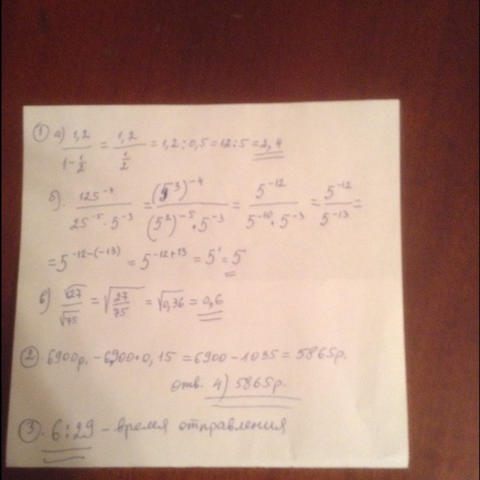 ① а) 1,2/(1-1/2) = 1,2/(1/2) = 1,2:0,5 = 12:5 = 2,4
б). 125⁻⁴/(25⁻⁵·5⁻³) = (5³)⁻⁴/((5²)⁻⁵·5⁻³) = 5⁻¹²/(5⁻¹⁰·5⁻³) = 5⁻¹²/5⁻¹³ =
= 5⁻¹²⁻⁽⁻¹³⁾ = 5⁻¹²⁺¹³ = 5¹ = 5
в) √27/√75 = √(27/75) = √0,36 = 0,6
② 6900р. - 6900·0,15 = 6900 - 1035 = 5865р.
отв. 4) 5865р.
③. 6:29 - время отправления